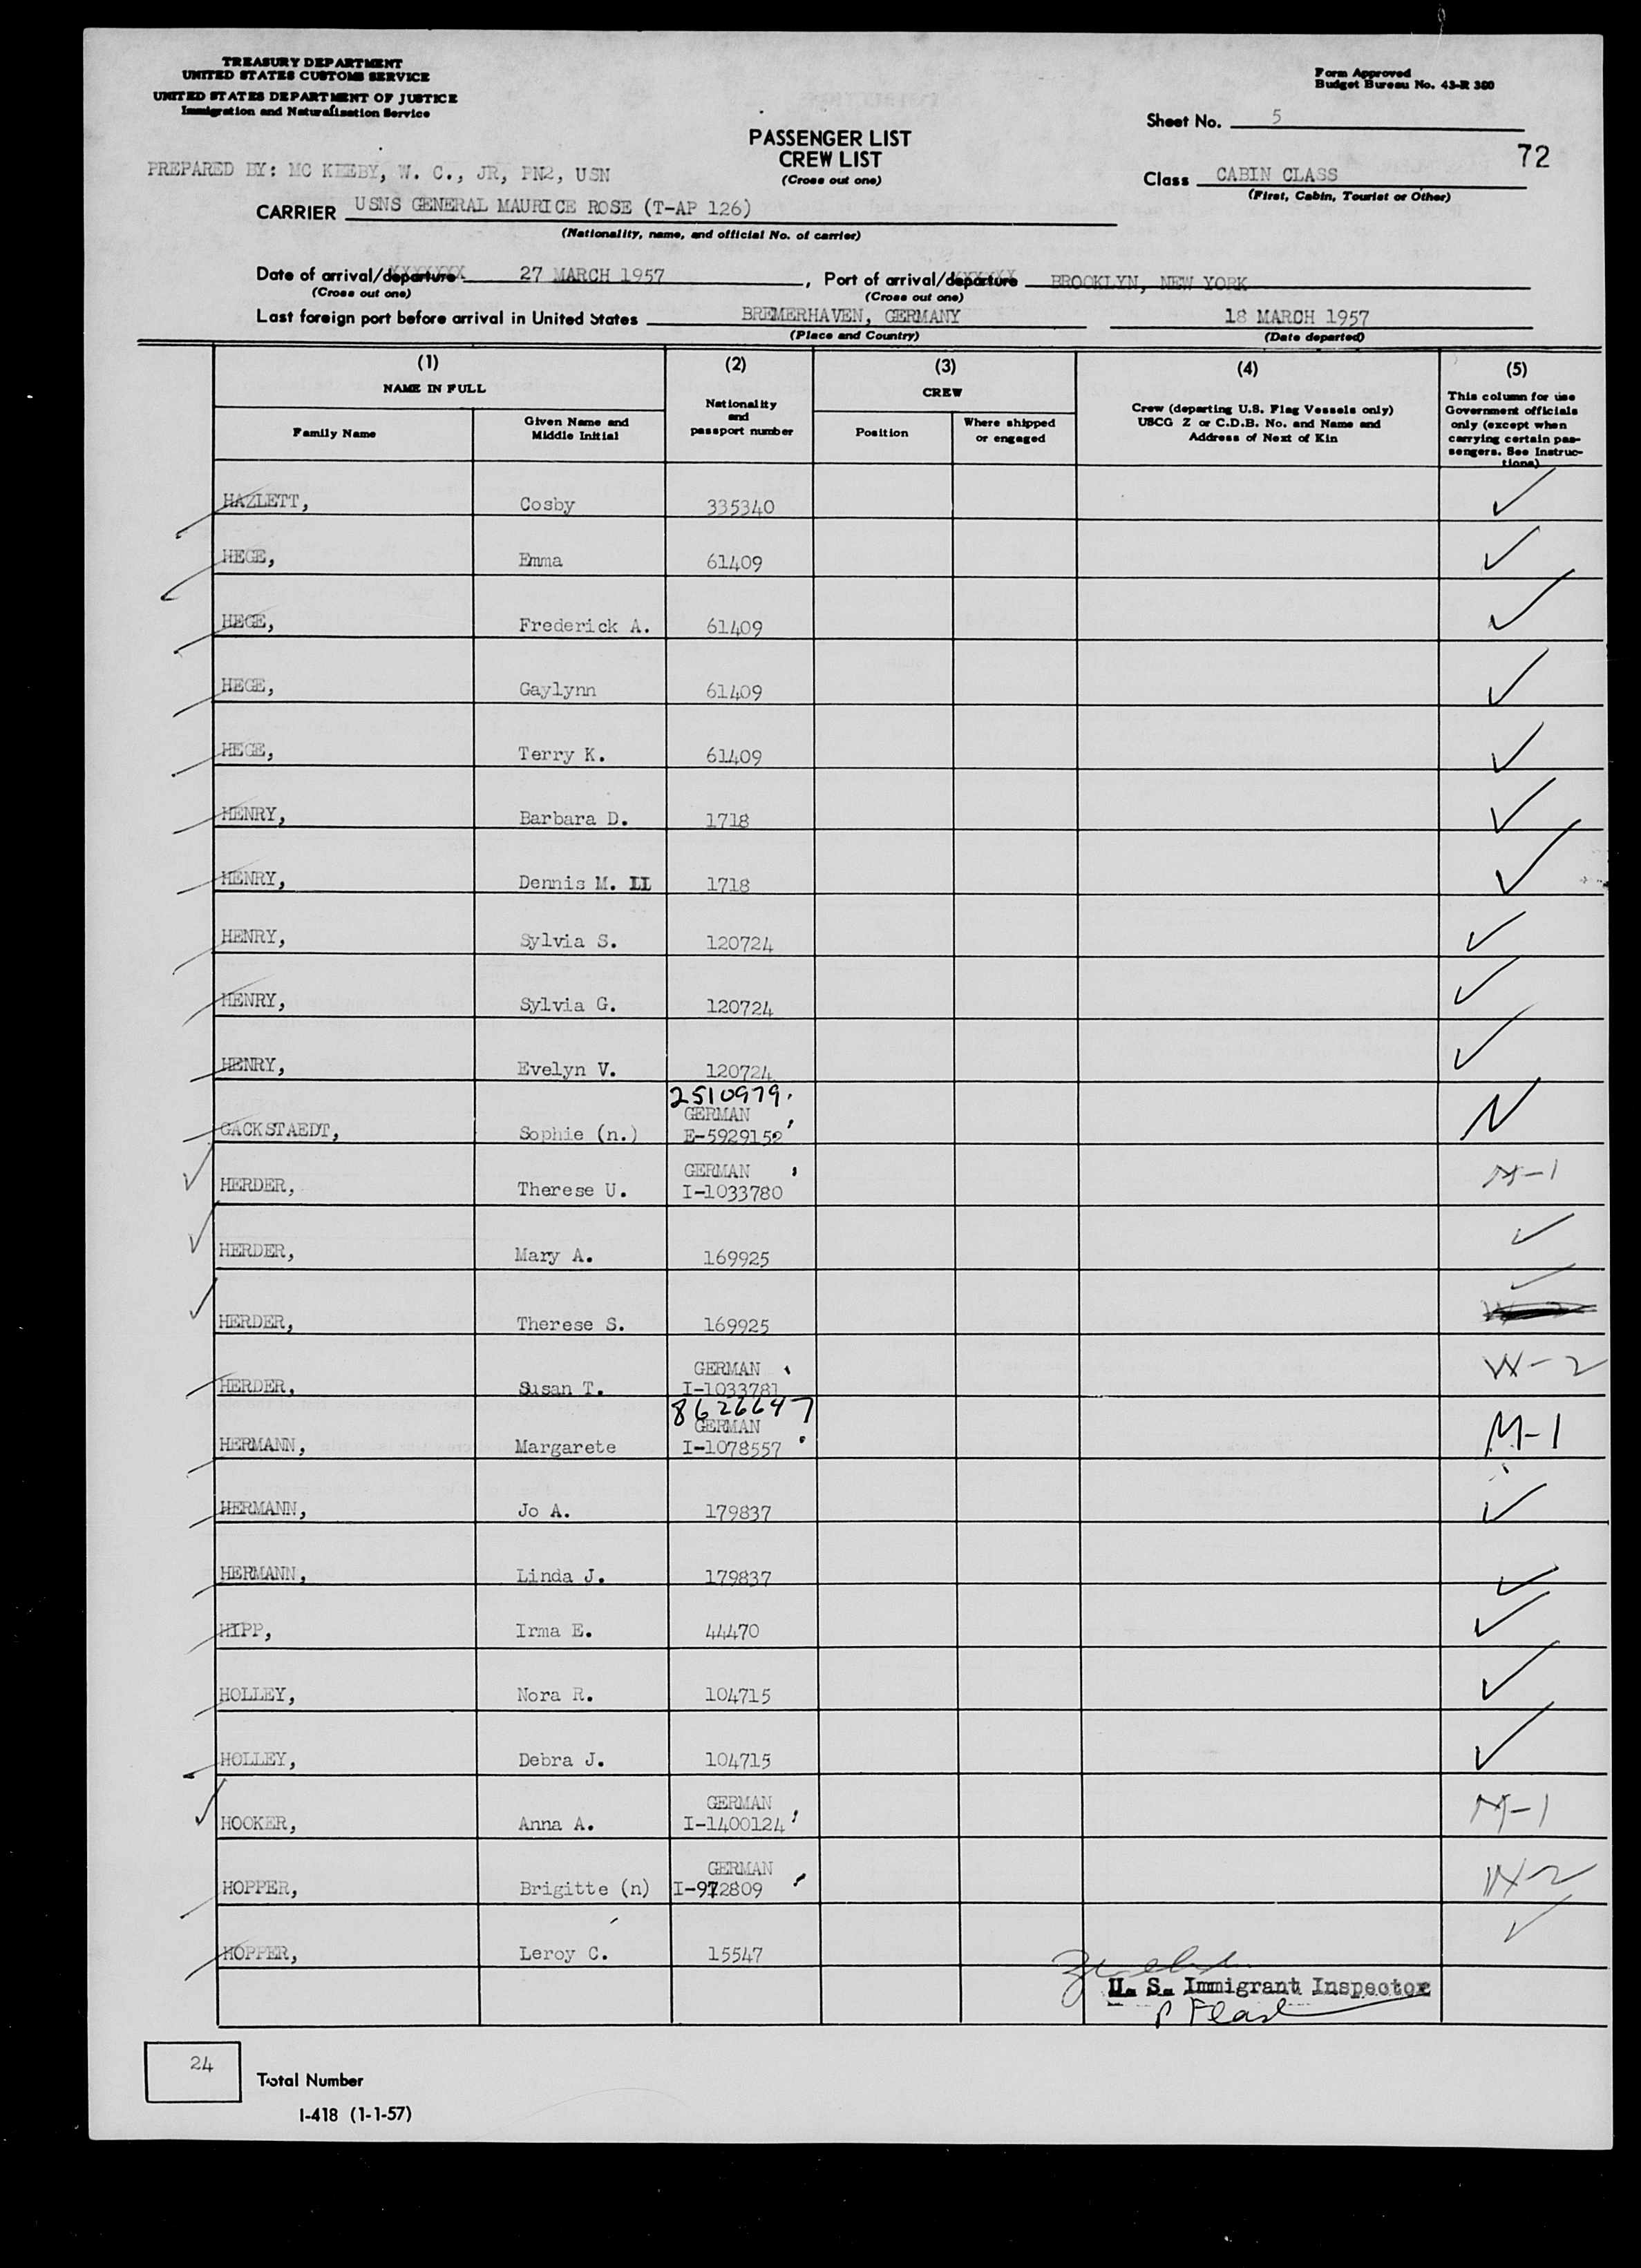 TREASURY DEPARTMENT
UNITED STATES CUSTOMS SERVICE
UNITED STATES DEPARTMENT OF JUSTICE
Immigration and Naturalization Service
Form Approved
Budget Bureau No. 43-R 380
Sheet No. 5
72
PASSENGER LIST
CREW LIST
(Cross out one)
PREPARED BY: MC KEEBY, W. C., JR, PN2, USN
Class CABIN CLASS
(First, Cabin, Tourist or Other)
CARRIER USNS GENERAL MAURICE ROSE (T-AP 126)
(Nationality, name, and official No. of carrier)
Date of arrival/departure 27 MARCH 1957, Port of arrival/departure BROOKLYN, NEW YORK
(Cross out one) (Cross out one)
Last foreign port before arrival in United States BREMERHAVEN, GERMANY 18 MARCH 1957
(Place and Country) (Date departed)
(1) (2) (3) (4) (5)
NAME IN FULL
Family Name
Given Name and
Middle Initial
Nationality
and
passport number
CREW
Position
Where shipped
or engaged
Crew (departing U.S. Flag Vessels only)
USCG Z or C.D.B. No. and Name and
Address of Next of Kin
This column for use
Government officials
only (except when
carrying certain pas-
sengers. See Instruc-
tions)
HAZLETT, Cosby 335340 ✓
HEGE, Emma 61409 ✓
HEGE, Frederick A. 61409 ✓
HEGE, Gaylynn 61409 ✓
HEGE, Terry K. 61409 ✓
HENRY, Barbara D. 1718 ✓
HENRY, Dennis M. II 1718 ✓
HENRY, Sylvia S. 120724 ✓
HENRY, Sylvia G. 120724 ✓
HENRY, Evelyn V. 120724 ✓
2510979.
GERMAN
GACKSTAEDT, Sophie (n.) E-5929152 N
GERMAN
HERDER, Therese U. I-1033780 M-1
HERDER, Mary A. 169925 ✓
HERDER, Therese S. 169925 ✓
GERMAN
HERDER, Susan T. I-1033781 W-2
8626647
GERMAN
HERMANN, Margarete I-1078557 M-1
HERMANN, Jo A. 179837 ✓
HERMANN, Linda J. 179837 ✓
HIPP, Irma E. 44470 ✓
HOLLEY, Nora R. 104715 ✓
HOLLEY, Debra J. 104715 ✓
GERMAN
HOOKER, Anna A. I-1400124 M-1
GERMAN
HOPPER, Brigitte (n) I-972809 W-2
HOPPER, Leroy C. 15547 ✓
U. S. Immigrant Inspector
24
Total Number
I-418 (1-1-57)